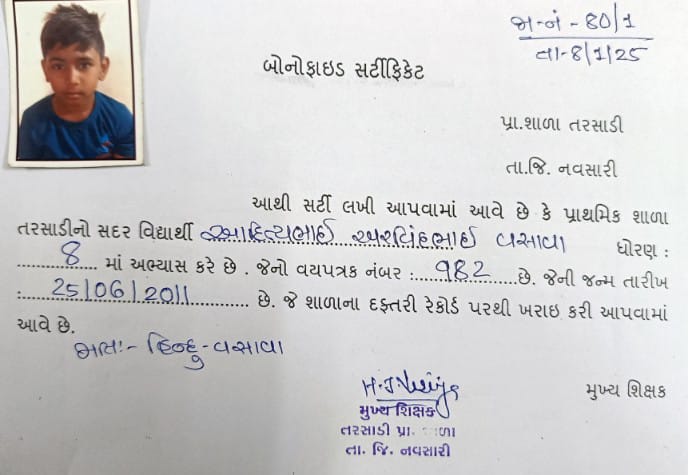 જા-નં - 80/1
તા-8/1/25
બોનોફાઇડ સર્ટીફિકેટ
પ્રા.શાળા તરસાડી
તા.જિ. નવસારી
આથી સર્ટી લખી આપવામાં આવે છે કે પ્રાથમિક શાળા
તરસાડીનો સદર વિદ્યાર્થી આદિત્યભાઈ અરવિંદભાઈ વસાવા ધોરણ :
8 માં અભ્યાસ કરે છે . જેનો વયપત્રક નંબર : 982 છે. જેની જન્મ તારીખ
: 25/06/2011 છે. જે શાળાના દફતરી રેકોર્ડ પરથી ખરાઇ કરી આપવામાં
આવે છે.
જાત:- હિન્દુ-વસાવા
મુખ્ય શિક્ષક
મુખ્ય શિક્ષક
તરસાડી પ્રા. શાળા
તા. જિ. નવસારી